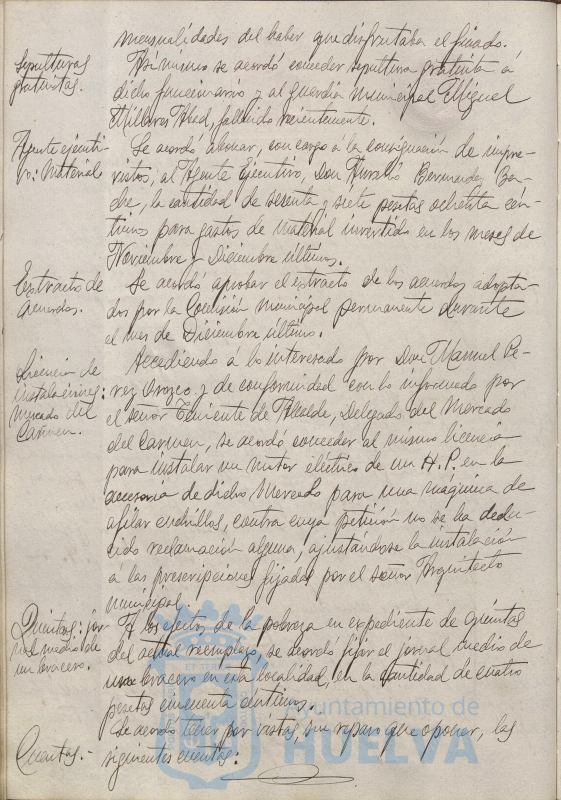 mensualidades del haber que disfrutaba el finado.
Sepulturas
gratuitas.
Así mismo se acordó conceder sepultura gratuita á
dicho funcionario y al guardia municipal Miguel
Millares Abad, fallecido recientemente.
Agente ejecuti-
vo: Material
Se acordó abonar, con cargo a la consignación de impre-
vistos, al Agente Ejecutivo, Don Aurelio Bermudez
la cantidad de sesenta y siete pesetas ochenta cén-
timos para gastos de material invertido en los meses de
Noviembre y Diciembre últimos.
Extracto de
acuerdos.
Se acordó aprobar el extracto de los acuerdos adopta-
dos por la Comisión municipal permanente durante
el mes de Diciembre último.
Licencia de
instalaciones:
Mercado del
Carmen.
Accediendo á lo interesado por Don Manuel Pe-
rez Orozco y de conformidad con lo informado por
el señor Teniente de Alcalde, Delegado del Mercado
del Carmen, se acordó conceder al mismo licencia
para instalar un motor eléctrico de un H.P. en la
accesoria de dicho Mercado para una maquina de
afilar cuchillos, contra cuya petición no se ha dedu-
cido reclamación alguna, ajustándose la instalación
á las prescripciones fijadas por el señor Arquitecto
municipal.
Quintas: jor-
nal medio de
un bracero.
A los efectos de la pobreza en expediente de quintas
del actual reemplazo, se acordó fijar el jornal medio de
un bracero en esta localidad, en la cantidad de cuatro
pesetas cincuenta céntimos.
Cuentas.-
Se acordó tener por vistas, sin reparo que oponer, las
siguientes cuentas:
Ayuntamiento de
HUELVA